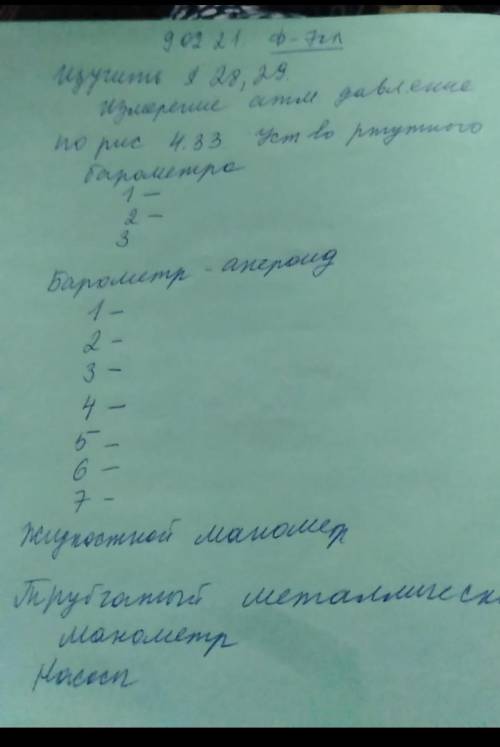 9 02 21. Ф-7кл
Изучить § 28, 29.
Измерение атм давление
по рис 4.33 Уст во ртутного
барометра
1 –
2 –
3
Барометр - анероид
1 –
2 –
3 –
4 –
5 –
6 –
7 –
Жидкостной маномер
Трубчатый металлическ
манометр
Насосы